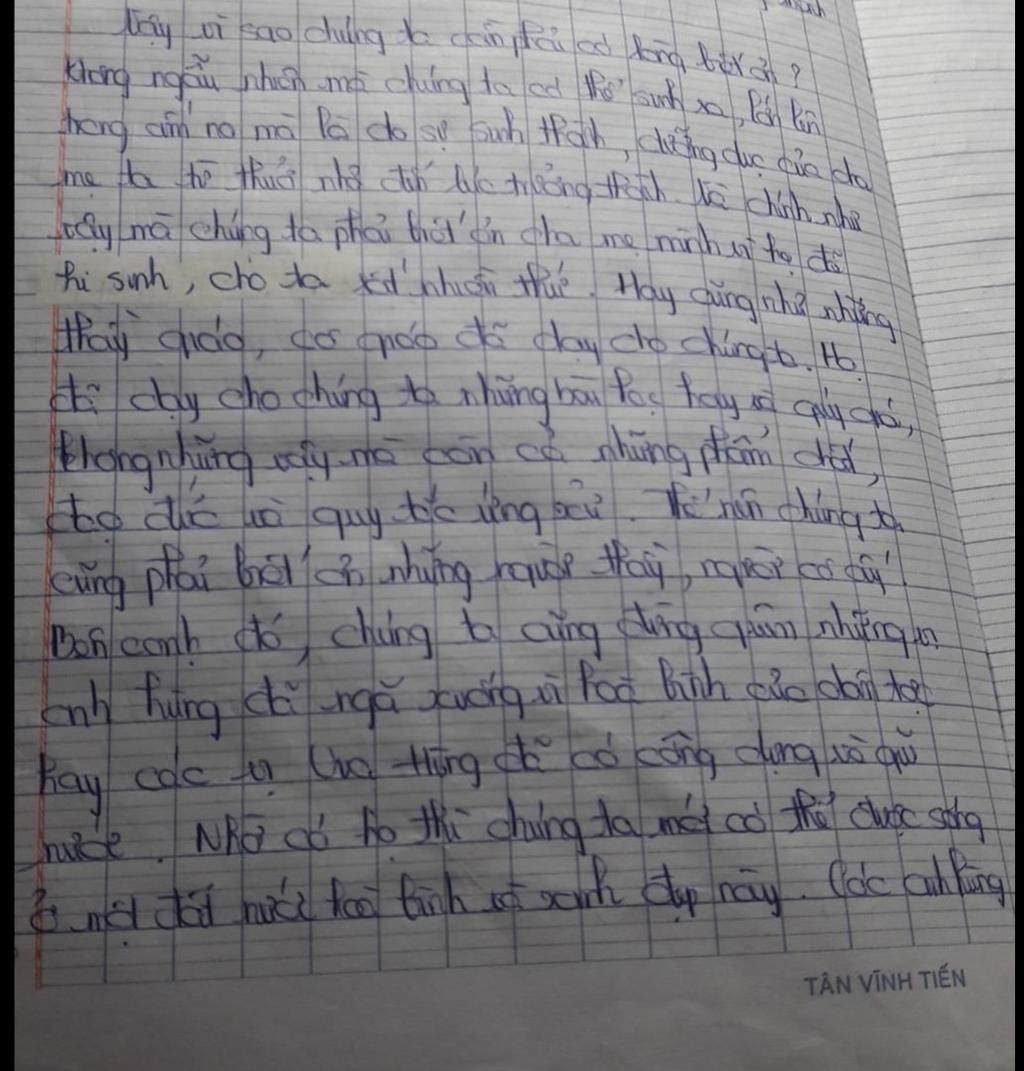 thành
Vậy vì sao chúng ta cần phải có lòng biết ơn?
Không ngẫu nhiên mà chúng ta có thể sinh ra, lớn lên
trong ấm no mà là do sự sinh thành, dưỡng dục của cha
mẹ ta từ thuở nhỏ đến lúc trưởng thành. Và chính như
vậy mà chúng ta phải biết ơn cha mẹ mình vì họ đã
hi sinh, cho ta nhiều thứ. Hay cũng như những
thầy giáo, cô giáo đã dạy cho chúng ta. Họ
đã dạy cho chúng ta những bài học hay và quý giá,
không những vậy mà còn cả những phẩm chất,
đạo đức và quy tắc ứng xử. Thế nên chúng ta
cũng phải biết ơn những người thầy, người cô ấy
Bên cạnh đó, chúng ta cũng đừng quên những
anh hùng đã ngã xuống vì hoà bình của dân tộc
hay các vị Vua Hùng đã có công dựng và giữ
nước. Nhờ có họ thì chúng ta mới có thể được sống
ở một đất nước hoà bình và xanh đẹp này. Các anh hùng
TÂN VĨNH TIẾN